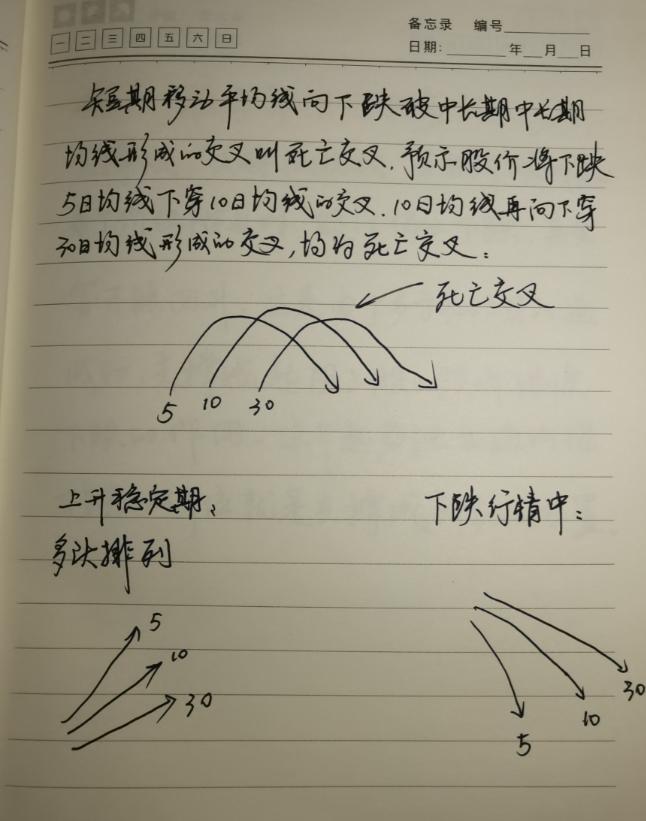 备忘录 编号
一 二 三 四 五 六 日
日期: 年 月 日
短期移动平均线向下跌破中长期中长期
均线形成的交叉叫死亡交叉.预示股价将下跌
5日均线下穿10日均线的交叉.10日均线再向下穿
30日均线形成的交叉,均为死亡交叉:
死亡交叉
5 10 30
上升稳定期: 下跌行情中:
多头排列
5
10
30
30
10
5